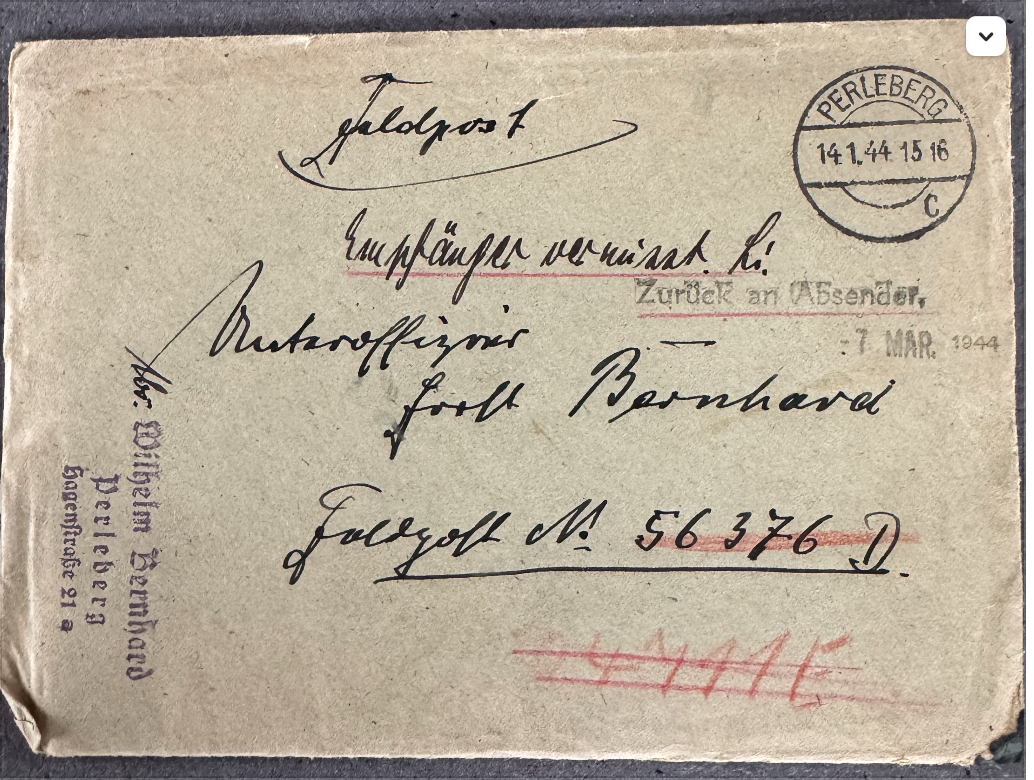 Feldpost
PERLEBERG
14.1.44 15 16
C
Empfänger vermisst.
Zurück an Absender,
- 7 MAR. 1944
Unteroffizier
Horst Bernhard
Feldpost N! 56 376 D.
Abs: Wilhelm Bernhard
Perleberg
Hagenstraße 21 a